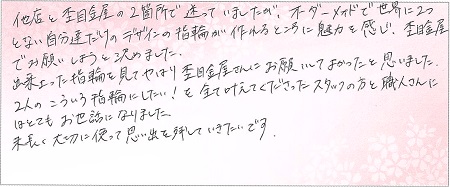 他店と杢目金屋の2箇所で迷っていましたが、オーダーメイドで世界に2つ
とない自分達だけのデザインの指輪が作れるところに魅力を感じ、杢目金屋
でお願いしようと決めました。
出来上った指輪を見てやはり杢目金屋さんにお願いしてよかったと思いました。
2人のこういう指輪にしたい!を全て叶えてくださったスタッフの方と職人さんに
はとてもお世話になりました。
末長く大切に使って思い出を残していきたいです。